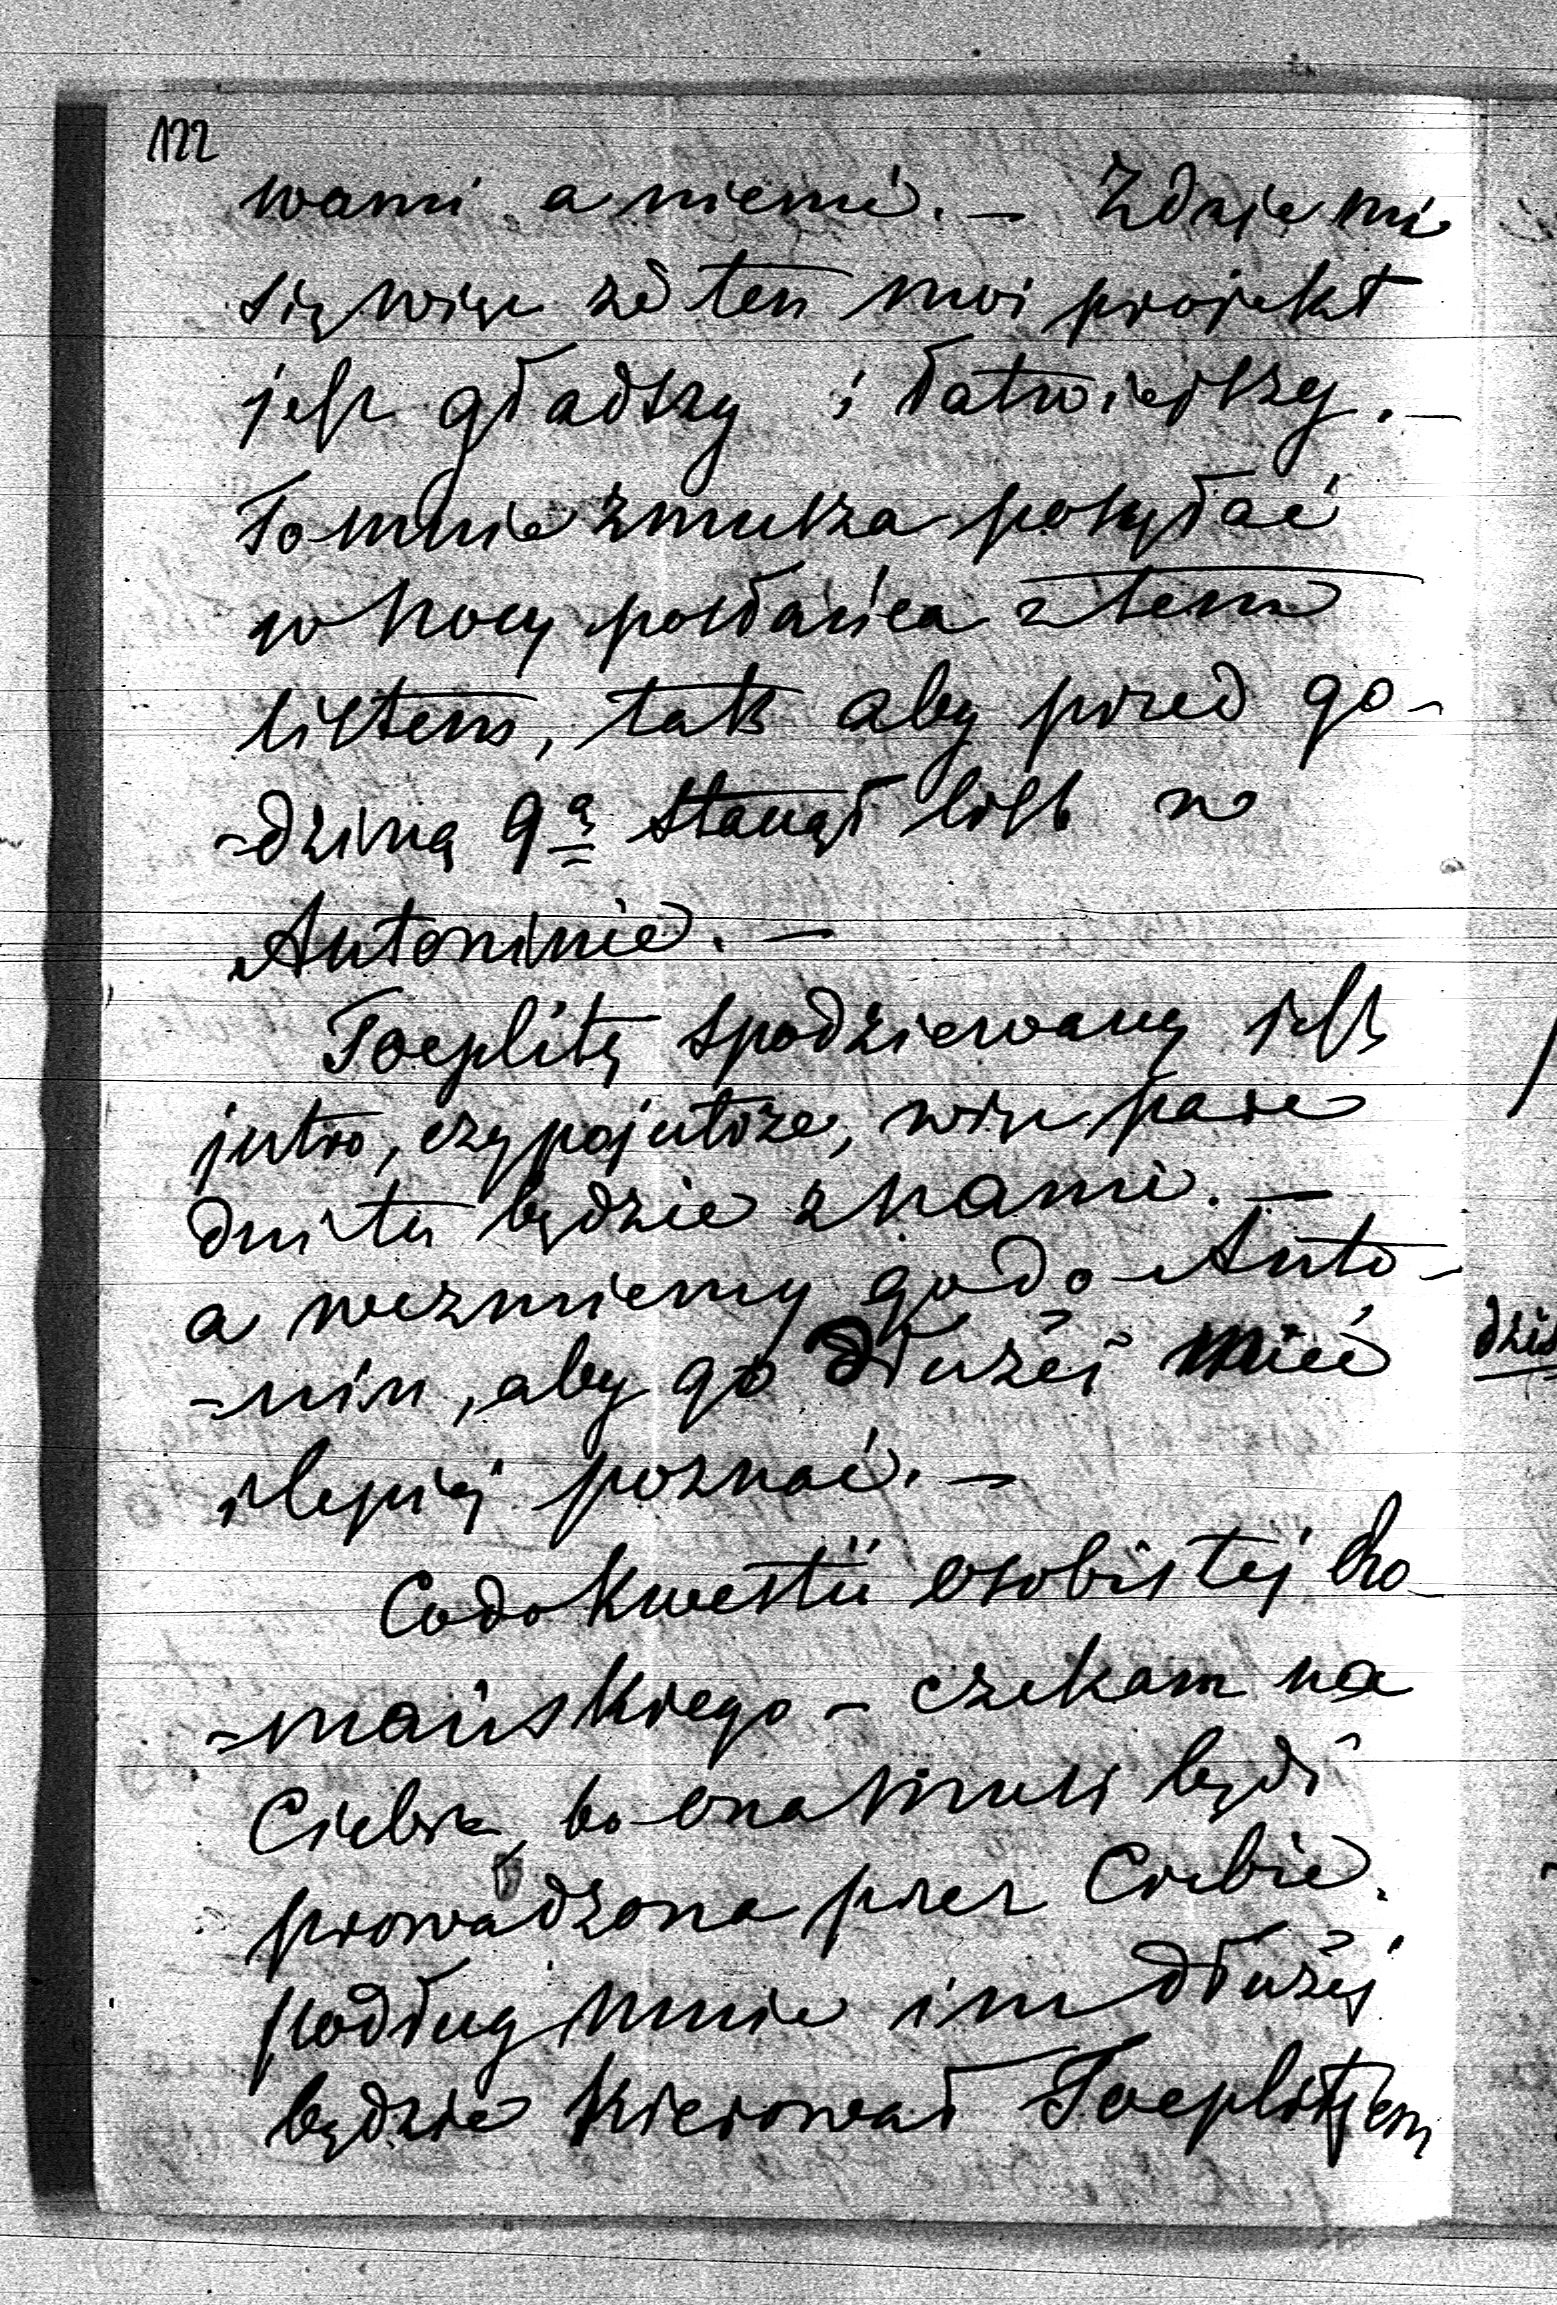 122
wami a niemi. – Zdaje mi
się więc że ten moi projekt
jest gładszy i łatwiejszy. –
To mnie zmusza posyłać
w nocy posłańca z tem
listem, tak aby przed go-
-dziną 9ą stanął list w
Antoninie. –
Toeplitz spodziewany jest
jutro, czy pojutrze, więc parę
dni tu będzie z nami. –
a weźmiemy go do Anto-
-nin, aby go dłużej mieć
i lepiej poznać. –
Co do kwestii osobistej Cho-
-mańskiego – czekam na
Ciebie, bo ona musi być
prowadzona przez Ciebie.
podług mnie im dłużej
będzie kierował Toeplitzem